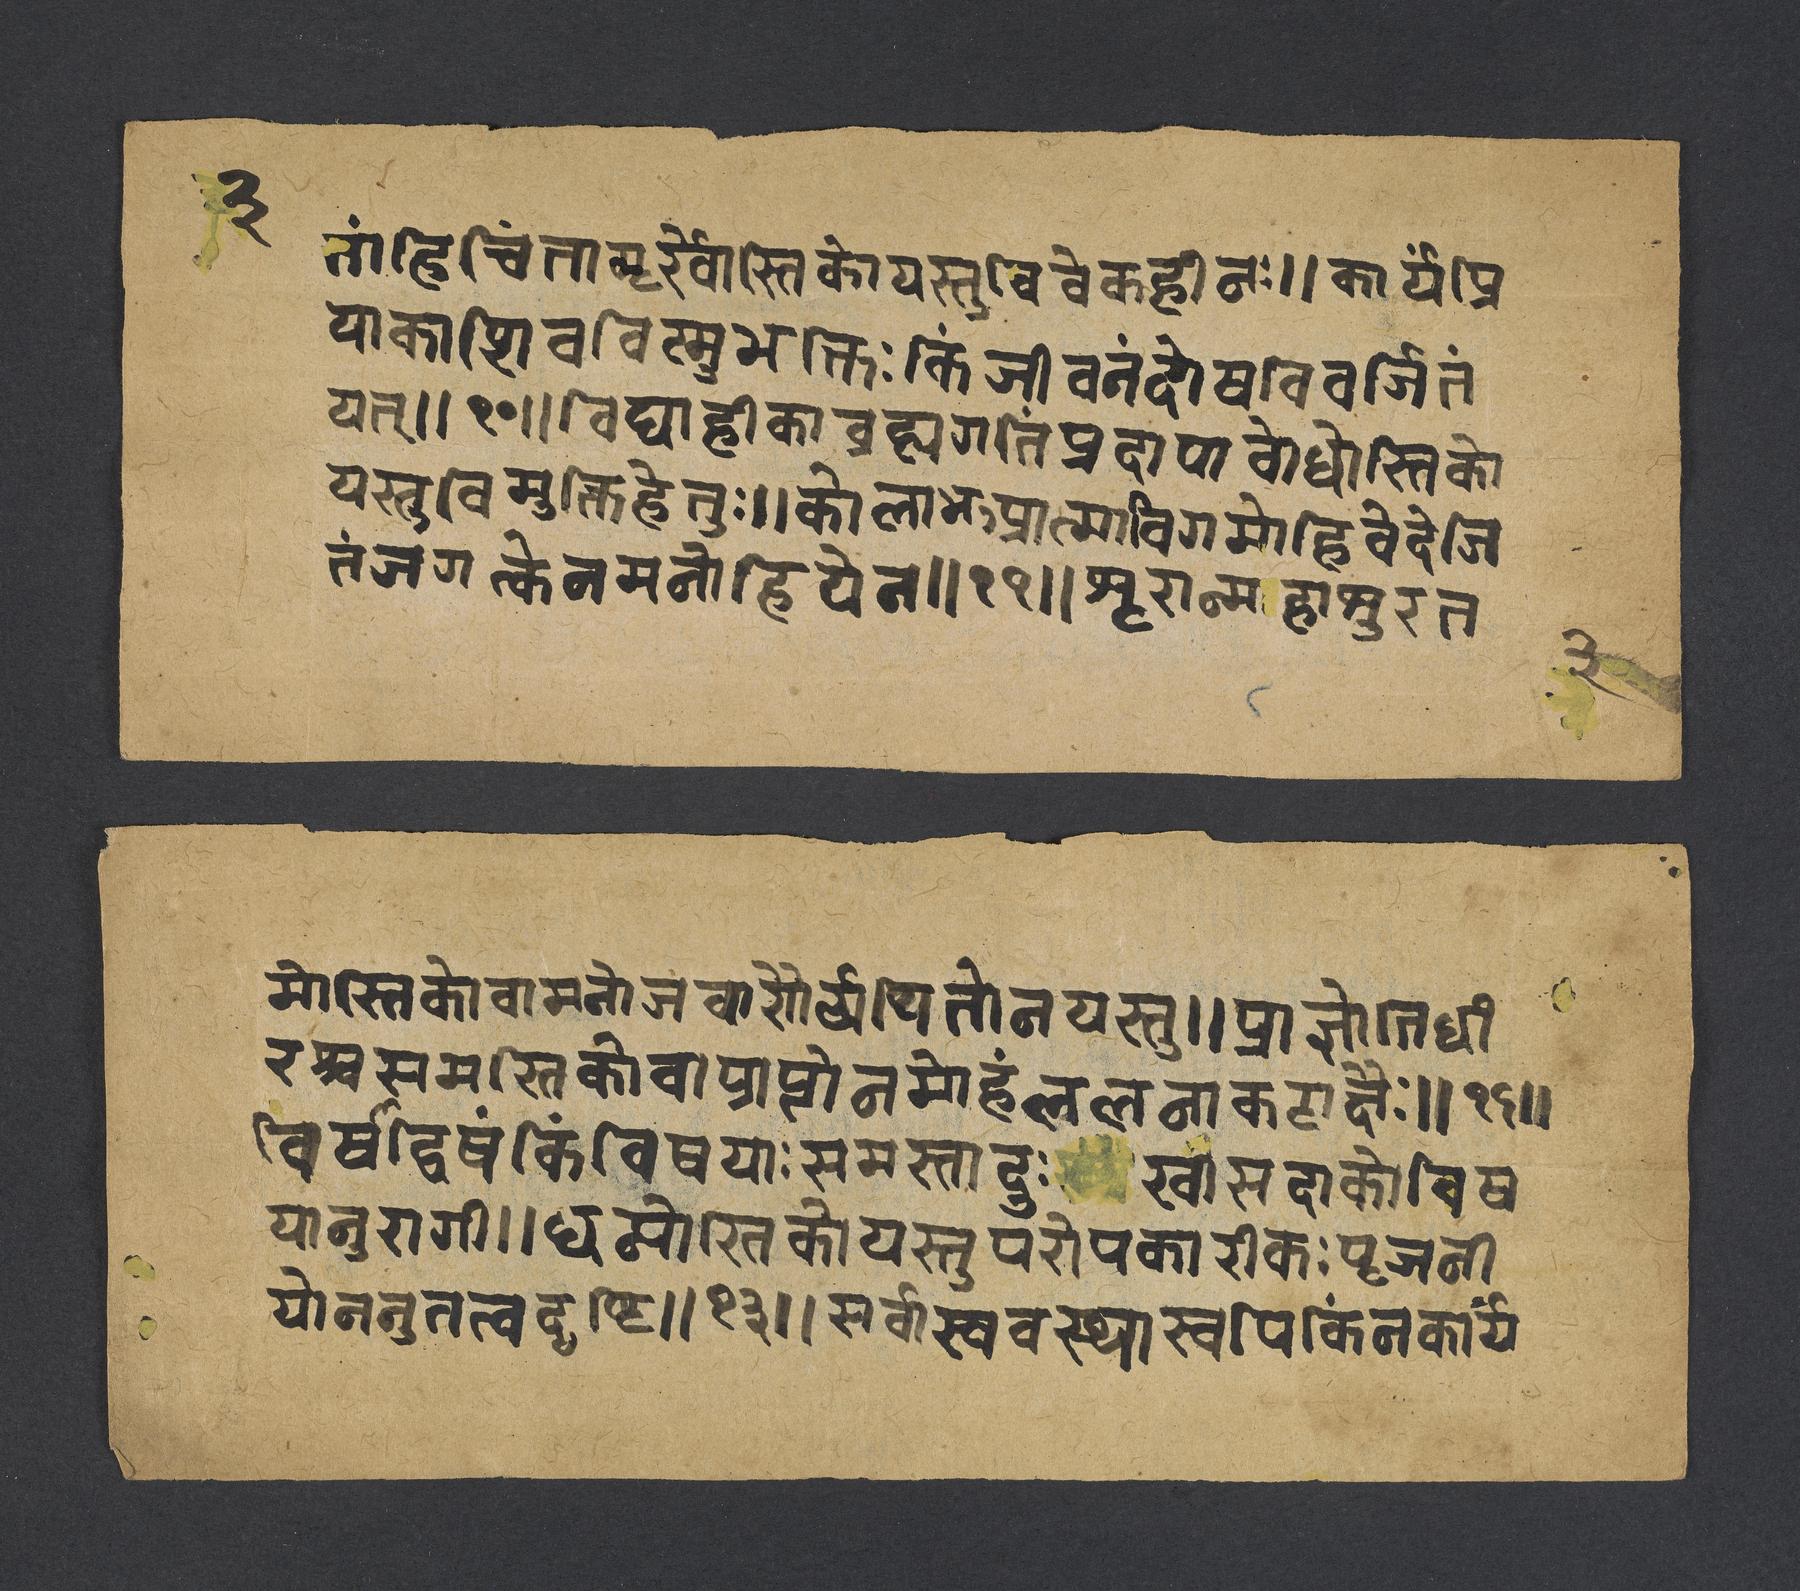 ३
तां हि चिंता मूर्खोस्ति को यस्तु विवेकहीनः ॥ कार्य प्रि
या का शिवविस्मुभक्तिः किं जीवनं दोषविवर्जितं
यत् ॥ १० ॥ विद्या ही का ब्रह्मगतिं प्रदा या बोधोस्ति को
यस्तु विमुक्तिहेतुः ॥ को लाभ प्रात्माविगमो हि वेदे जि
तं जगत्केन मनो हि येन ॥ ११ ॥ शूरान्महाशुरत
३
मोस्ति को वा मनोजवारौर्व्यथितो न यस्तु ॥ प्राज्ञोतिधी
रश्च समस्ति को वा प्राप्तो न मोहं ललनाकटाक्षैः ॥ १२ ॥
विर्षाद्विषं किं विषयाः समस्ता दुः खी सदा को विष
यानुरागी ॥ धन्योस्ति को यस्तु परोपकारी कः पूजनी
यो ननु तत्वदृष्टि ॥ १३ ॥ सर्वास्ववस्थास्वपि किं न कार्य